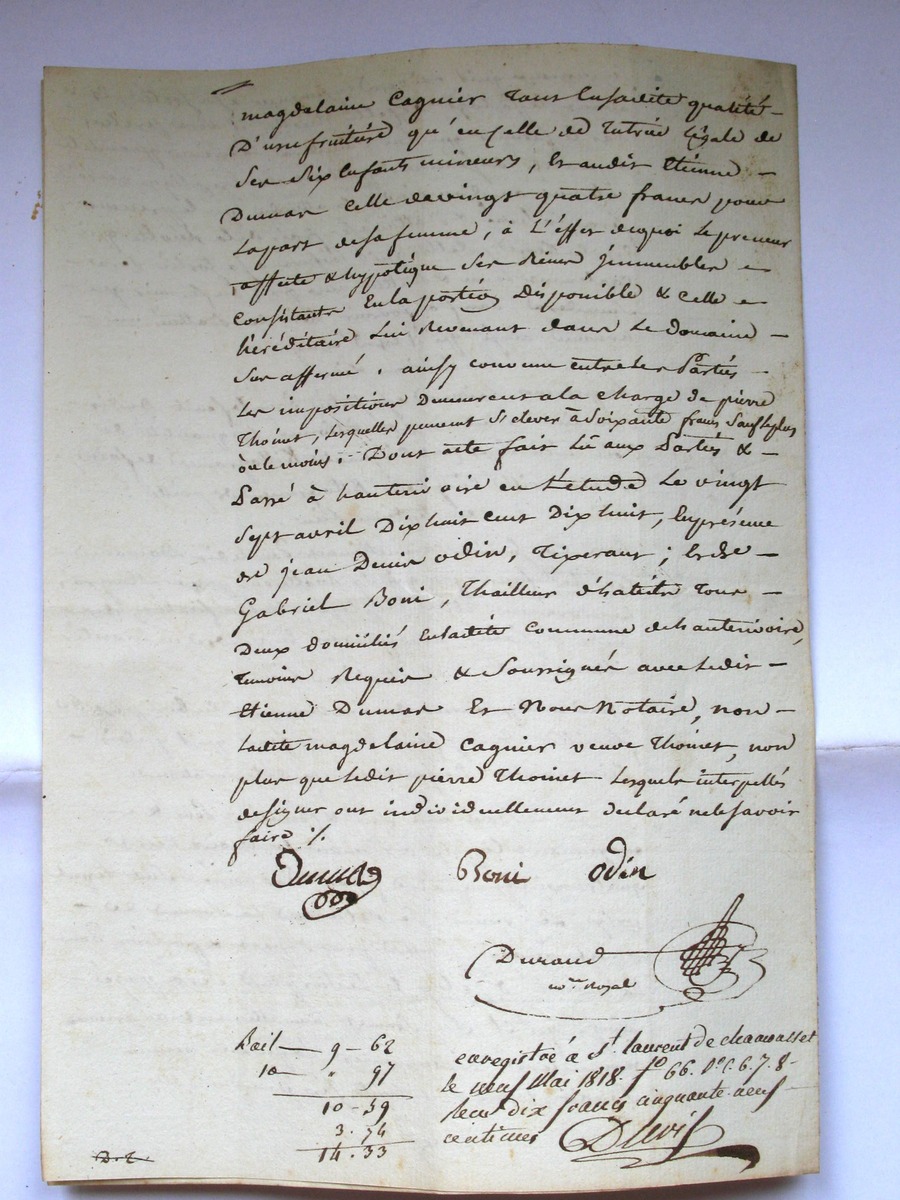 magdelaine Cagnier tant en sadite qualité
D'usufruitière qu'en celle de Tutrice légale de
Ses Six Enfants mineurs, Et audit Etienne
Dumas Celle de vingt quatre francs pour
La part de sa femme, à L'effet de quoi Le preneur
affecte & hypotèque Ses Biens Immeubles
Consistants En la portion Disponible & Celle
héréditaire Lui Revenant dans Le domaine
Sus affermé. ainsy convenu entre Les Partiés
Les impositions Demeurent a la charge de pierre
Thoinet, Lesquelles peuvent S'elever à Soixante francs Sauf Le plus
ou le moins. Dont acte fait Lû aux Partiés &
Passé à hauterivoire en L'etude Le vingt
Sept avril Dix huit cent Dix huit, En présence
de jean Denis odin, Tixerant; Et de
Gabriel Boni, Thailleur d'habits Tous
Deux domiciliés En ladite Commune de hauterivoire,
Temoins Requis & Soussignés avec Ledit
Etienne Dumas Et Nous Notaire, non
Ladite magdelaine Cagnier veuve Thoinet, non
plus que Ledit pierre Thoinet Lesquels interpellés
de Signer ont individuellement declaré ne le Savoir
faire ./.
Dumas Boni odin
Durand
no.re Royal
Bail 9-62
10 " 97
10-59
3.74
14.33
enregistré à St. laurent de chamousset
le neuf Mai 1818. fo 66. Vo c. 6. 7. 8.
Recu dix francs cinquante neuf
centimes
D. L.